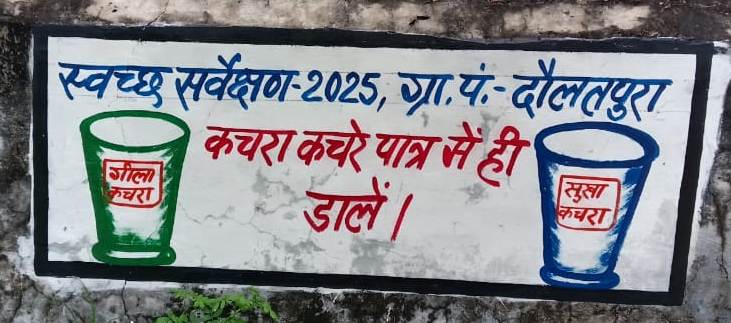 स्वच्छ सर्वेक्षण-2025, ग्रा.पं.-दौलतपुरा
कचरा कचरे पात्र में ही
डालें।
गीला
कचरा
सुखा
कचरा